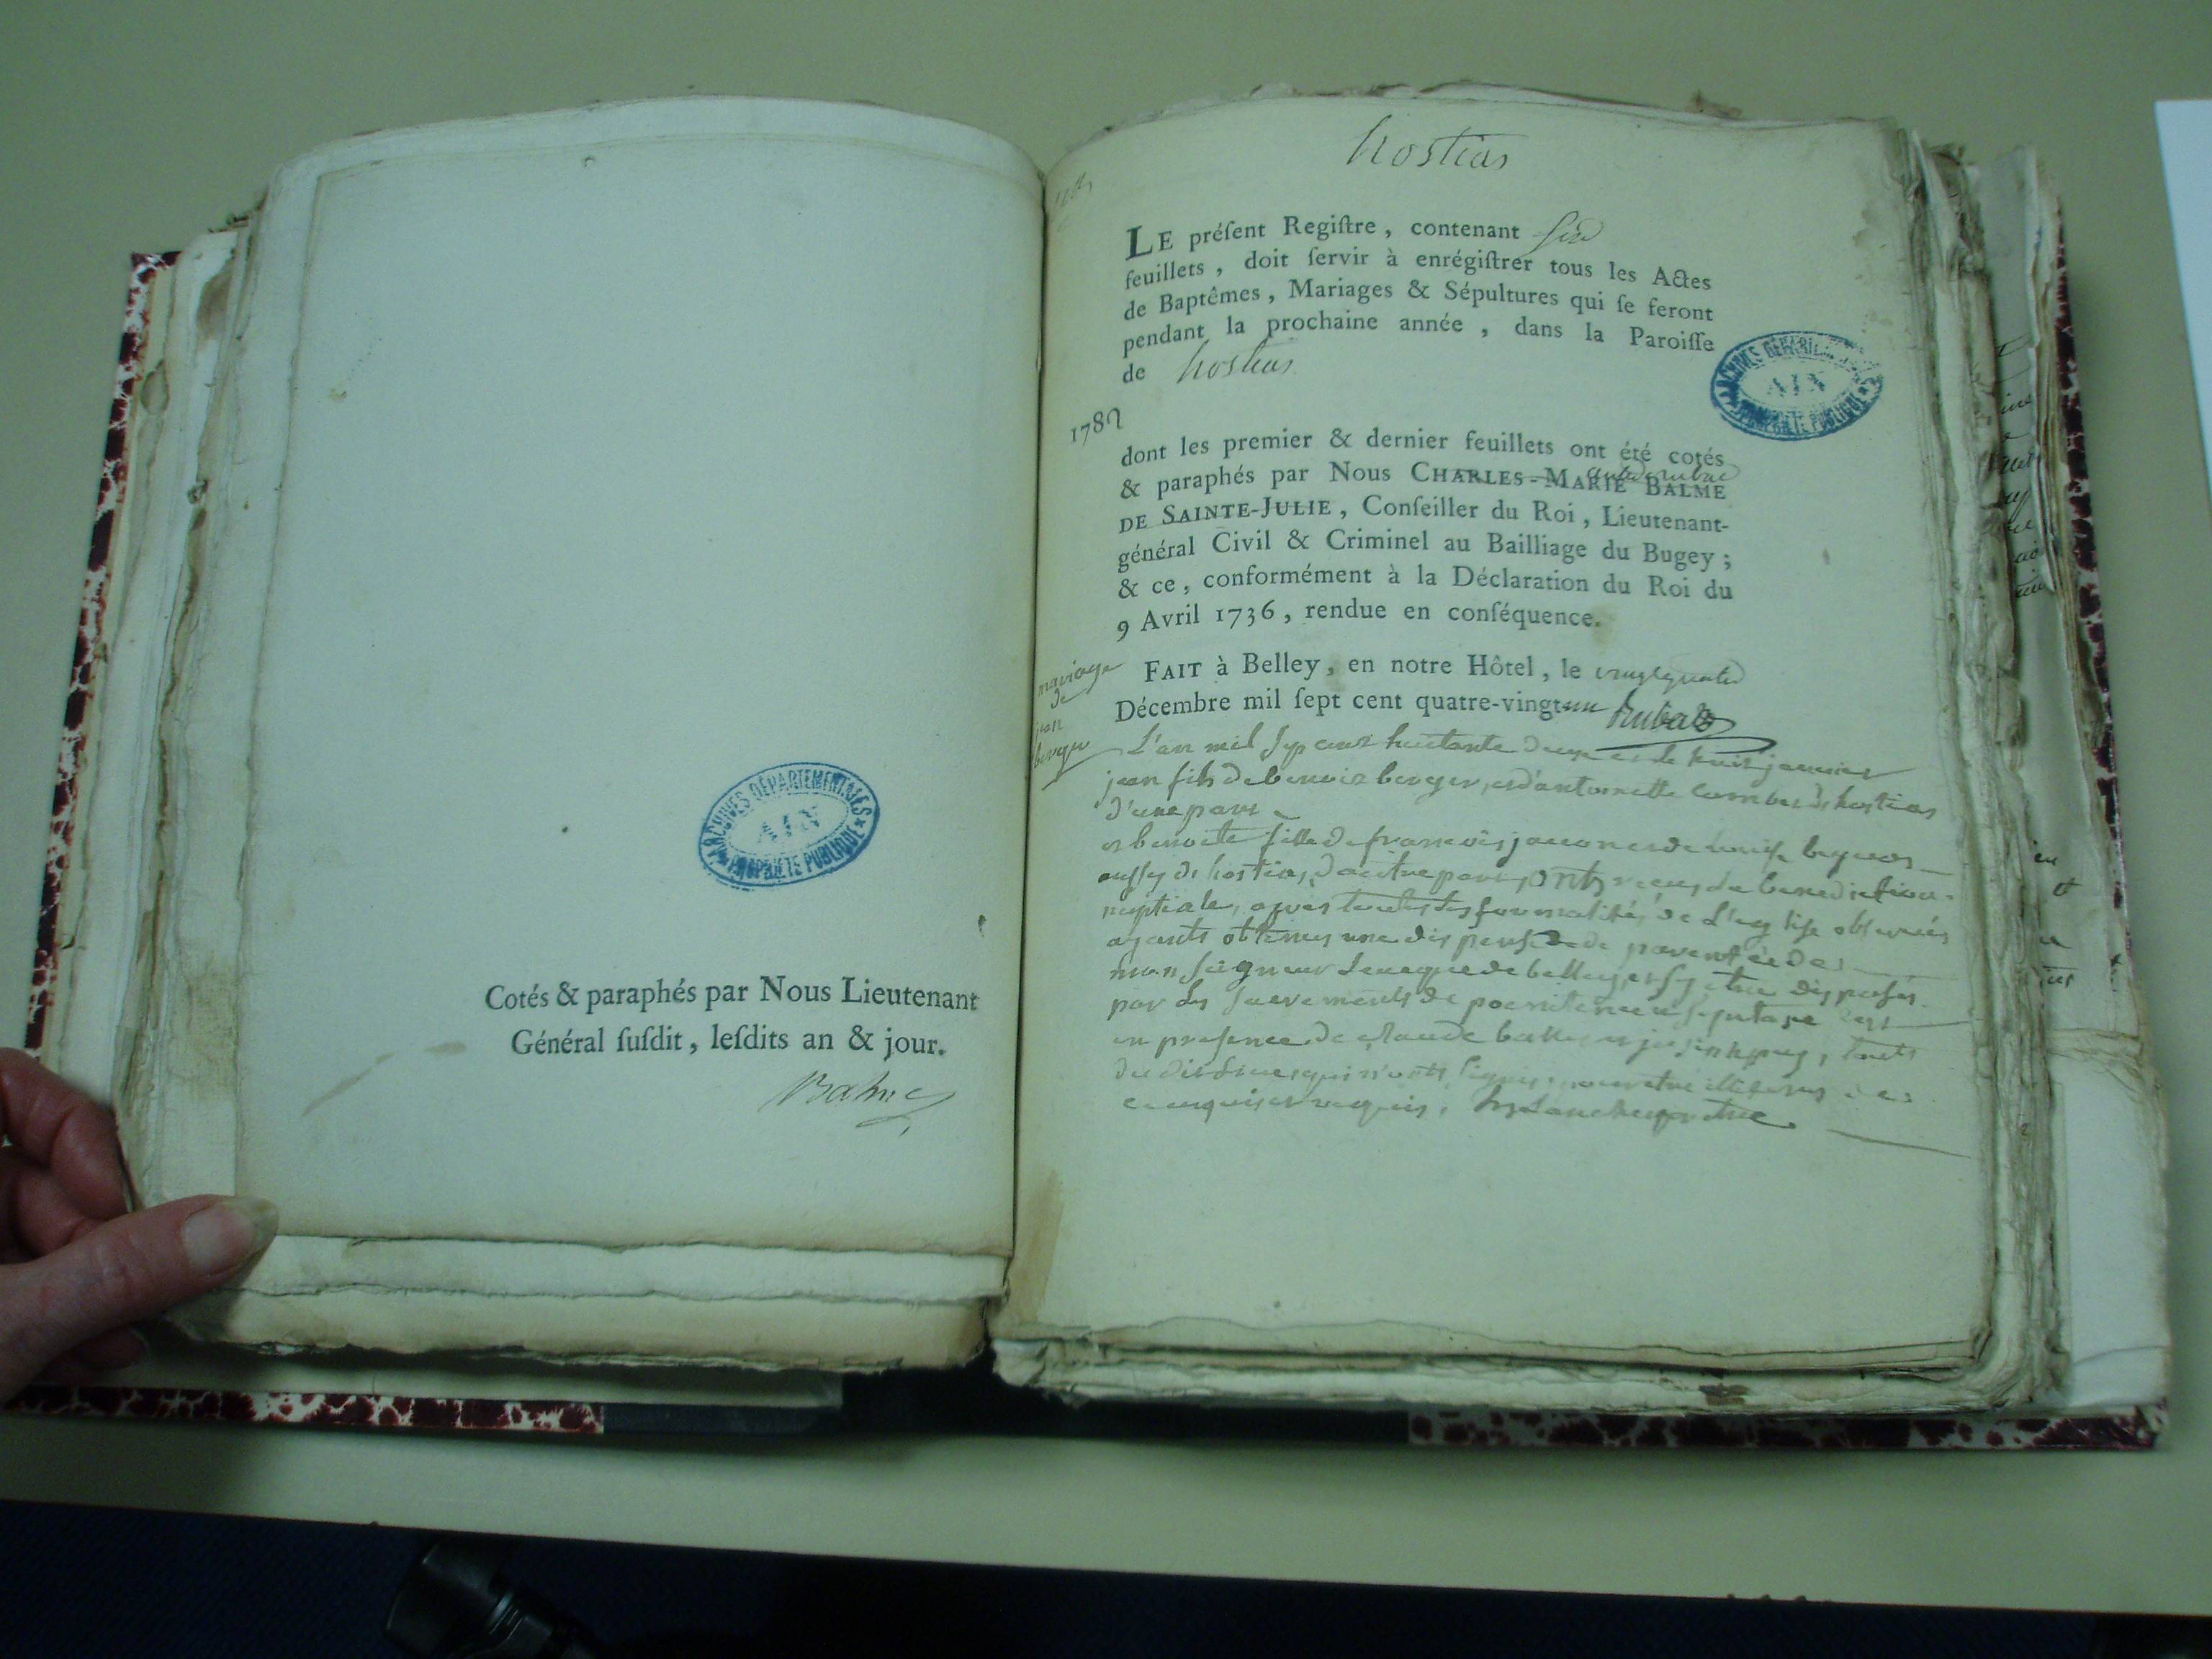 Cotés & paraphés par Nous Lieutenant
Général ſuſdit, leſdits an & jour.
Balme
ARCHIVES DÉPARTEMENTALES
AIN
PROPRIÉTÉ PUBLIQUE
hostias
LE préſent Regiſtre, contenant six
feuillets, doit ſervir à enrégiſtrer tous les Actes
de Baptêmes, Mariages & Sépultures qui ſe feront
pendant la prochaine année, dans la Paroiſſe
de hostias
ARCHIVES DÉPARTEMENTALES
AIN
PROPRIÉTÉ PUBLIQUE
1782
dont les premier & dernier feuillets ont été cotés
& paraphés par Nous CHARLES-MARIE BALME
DE SAINTE-JULIE, Conſeiller du Roi, Lieutenant-
général Civil & Criminel au Bailliage du Bugey;
& ce, conformément à la Déclaration du Roi du
9 Avril 1736, rendue en conſéquence.
FAIT à Belley, en notre Hôtel, le vingtquatre
Décembre mil ſept cent quatre-vingt-un
mariage
de
jean
berger
L'an mil sep cent huitante deux et le huit janvier
jean fils de benoit berger, et d'antoinette combet de hostias
d'une part
et benoite fille de francois et de louise
aussy de hostias, d'autre part, ont reçus la benediction
nuptiale, apres toutes les formalités de l'eglise observées
ayants obtenus une dispense de parentée de
monseigneur l'eveque de belley, et s'y etre disposés
par les sacrements de poenitence et
en presence de claude et, touts
du dit lieu, qui n'ont signés, pour etre illiterés de ce
enquis et requis.